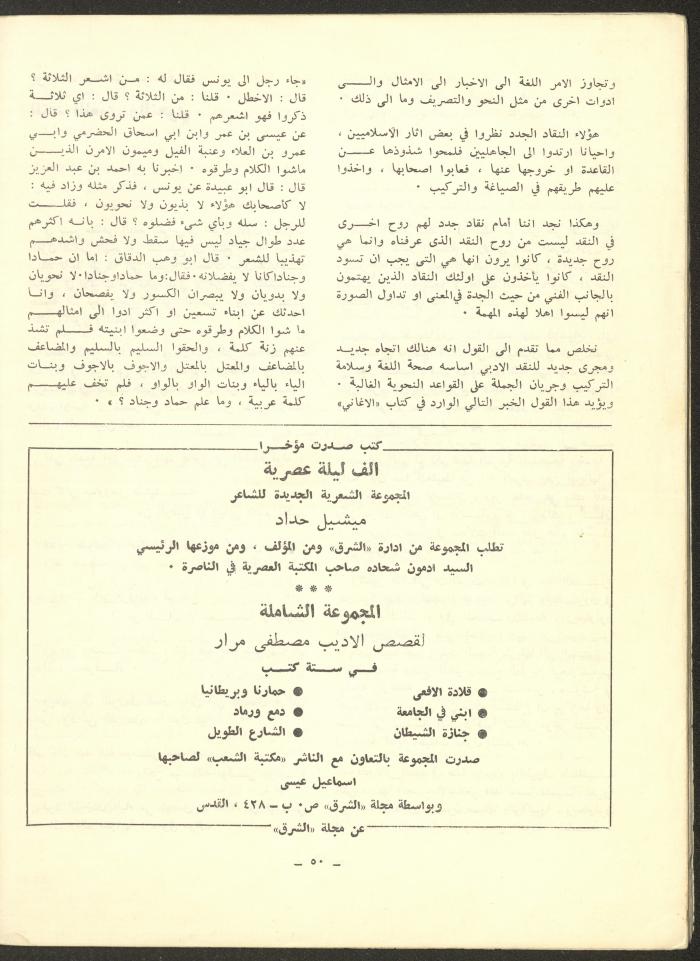 وتجاوز الامر اللغة الى الاخبار الى الامثال والـــى
ادوات اخرى من مثل النحو والتصريف وما الى ذلك ٠
هؤلاء النقاد الجدد نظروا في بعض اثار الاسلاميين ،
واحيانا ارتدوا الى الجاهليين فلمحوا شذوذها عـــن
القاعدة او خروجها عنها ، فعابوا اصحابها ، واخذوا
عليهم طريقهم في الصياغة والتركيب ٠
وهكذا نجد اننا أمام نقاد جدد لهم روح اخــرى
في النقد ليست من روح النقد الذى عرفناه وانما هي
روح جديدة ، كانوا يرون انها هي التى يجب ان تسود
النقد ، كانوا يأخذون على اولئك النقاد الذين يهتمون
بالجانب الفني من حيث الجدة في المعنى او تداول الصورة
انهم ليسوا اهلا لهذه المهمة ٠
نخلص مما تقدم الى القول انه هنالك اتجاه جديـد
ومجرى جديد للنقد الادبي اساسه صحة اللغة وسلامة
التركيب وجريان الجملة على القواعد النحوية الغالبة ٠
ويؤيد هذا القول الخبر التالي الوارد في كتاب «الاغاني»
«جاء رجل الى يونس فقال له : مـن اشـعر الثلاثة ؟
قال : الاخطل ٠ قلنا : من الثلاثة ؟ قال : اي ثلاثـــة
ذكروا فهو اشعرهم ٠ قلنا : عمن تروى هذا ؟ قال :
عن عيسى بن عمر وابن ابي اسحاق الحضرمي وابــي
عمرو بن العلاء وعنبة الفيل وميمون الامرن الذيـــن
ماشوا الكلام وطرقوه ٠ اخبرنا به احمد بن عبد العزيز
قال : قال ابو عبيدة عن يونس ، فذكر مثله وزاد فيه :
لا كاصحابك هؤلاء لا بذيون ولا نحويون ، فقلــت
للرجل : سله وباي شىء فضلوه ؟ قال : بانـه اكثرهم
عدد طوال جياد ليس فيها سقط ولا فحش واشدهــم
تهذيبا للشعر ٠ قال ابو وهب الدقاق : اما ان حمادا
وجنادا كانا لا يفضلانه٠فقال:وما حمادا وجنادا٠لا نحويان
ولا بدويان ولا يبصران الكسور ولا يفصحان ، وانـا
احدثك عن ابناء تسعين او اكثر ادوا الى امثالهــم
ما شوا الكلام وطرقوه حتى وضعوا ابنيته فـــلم تشذ
عنهم زنة كلمة ، والحقوا السليم بالسليم والمضاعف
بالمضاعف والمعتل بالمعتل والاجوف بالاجوف وبنـات
الياء بالياء وبنات الواو بالواو ، فلم تخف عليهـــم
كلمة عربية ، وما علم حماد وجناد ؟ » ٠
كتب صــدرت مؤخـــرا
الف ليلة عصرية
المجموعة الشعرية الجديدة للشاعر
ميشيل حداد
تطلب المجموعة من ادارة «الشرق» ومن المؤلف ، ومن موزعها الرئيسي
السيد ادمون شحاده صاحب المكتبة العصرية في الناصرة ٠
* * *
المجموعة الشاملة
لقصص الاديب مصطفى مرار
فــي ستــــة كتـــب
● قلادة الافعى ● حمارنا وبريطانيا
● ابني في الجامعة ● دمع ورماد
● جنازة الشيطان ● الشارع الطويل
صدرت المجموعة بالتعاون مع الناشر «مكتبة الشعب» لصاحبها
اسماعيل عيسى
وبواسطة مجلة «الشرق» ص٠ ب ــ ٤٢٨ ، القدس
عن مجلة «الشرق»
ــ ٥٠ ــ